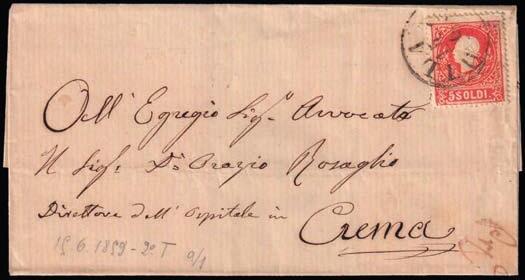 5 SOLDI
Dell' Egregio Sigr. Avvocato
Il Sigr. Dr. Orazio Rosaglio
Direttore dell' Ospitale in
Crema
15. 6. 1859 - 2º T 9/1